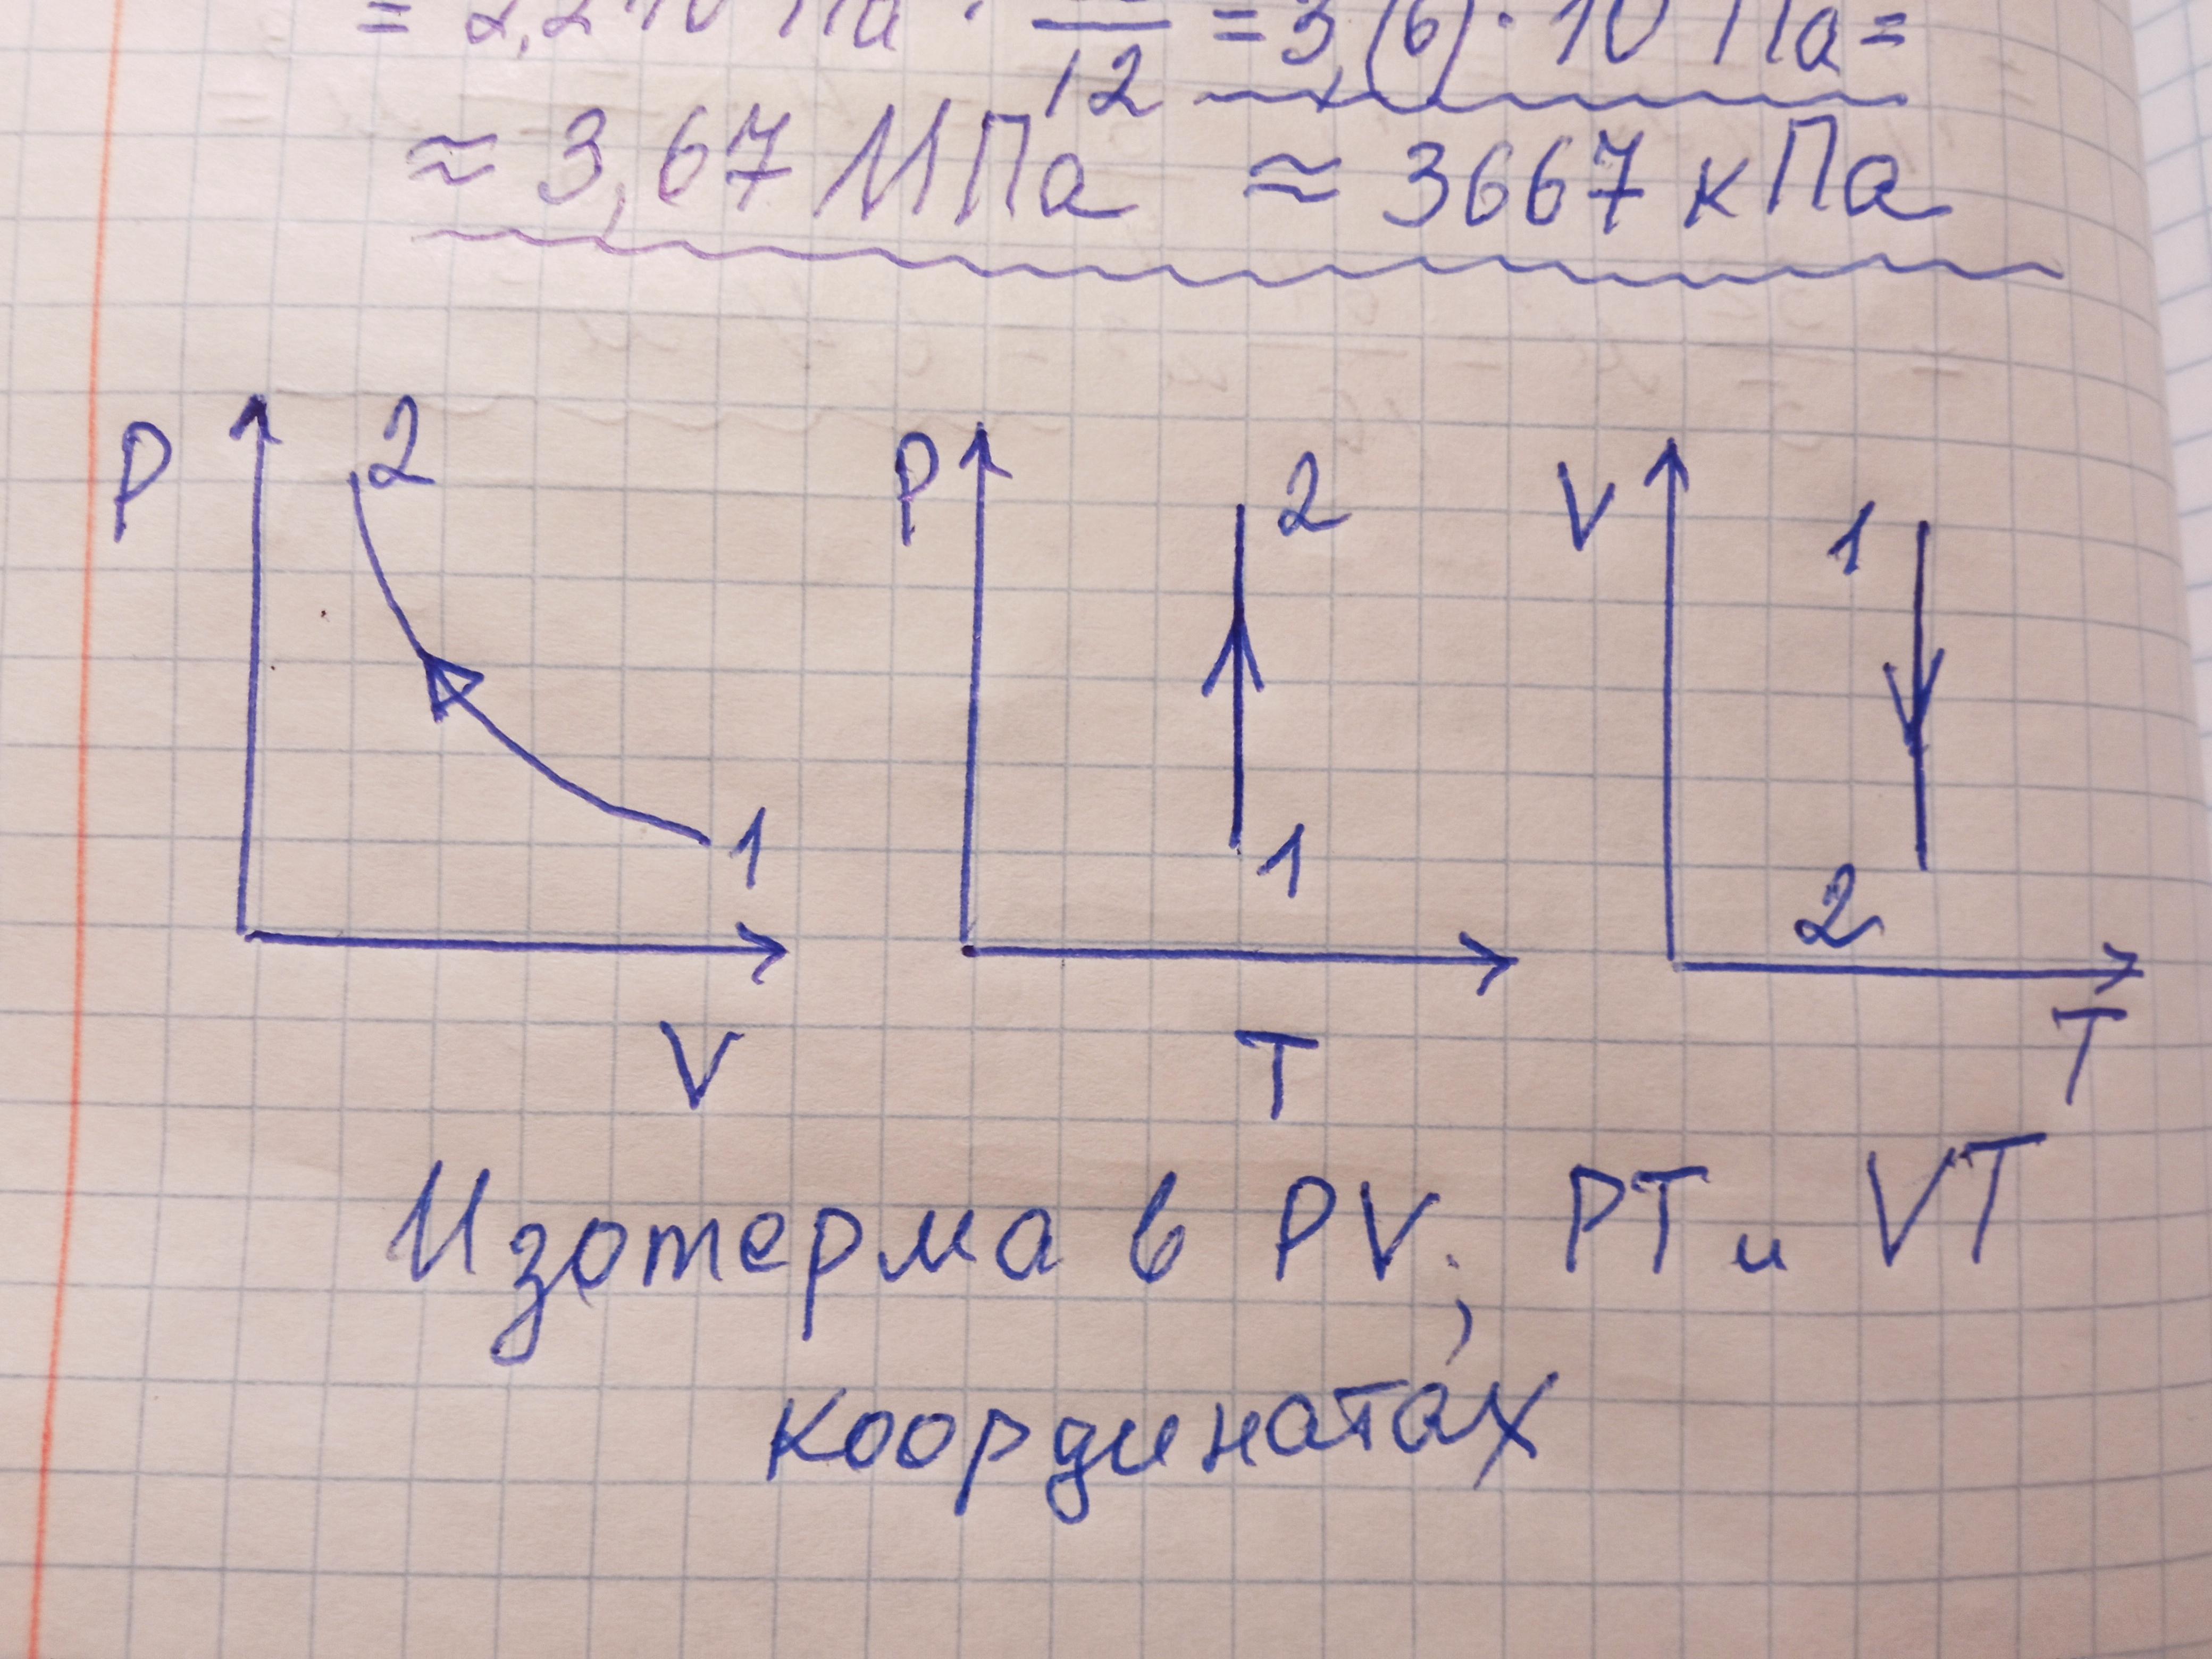 = 2,2 · 10 Па · /12 = 3,(6) · 10 Па =
≈ 3,67 МПа ≈ 3667 кПа
P 2 1 V
P 2 1 T
V 1 2 T
Изотерма в PV, PT и VT
координатах